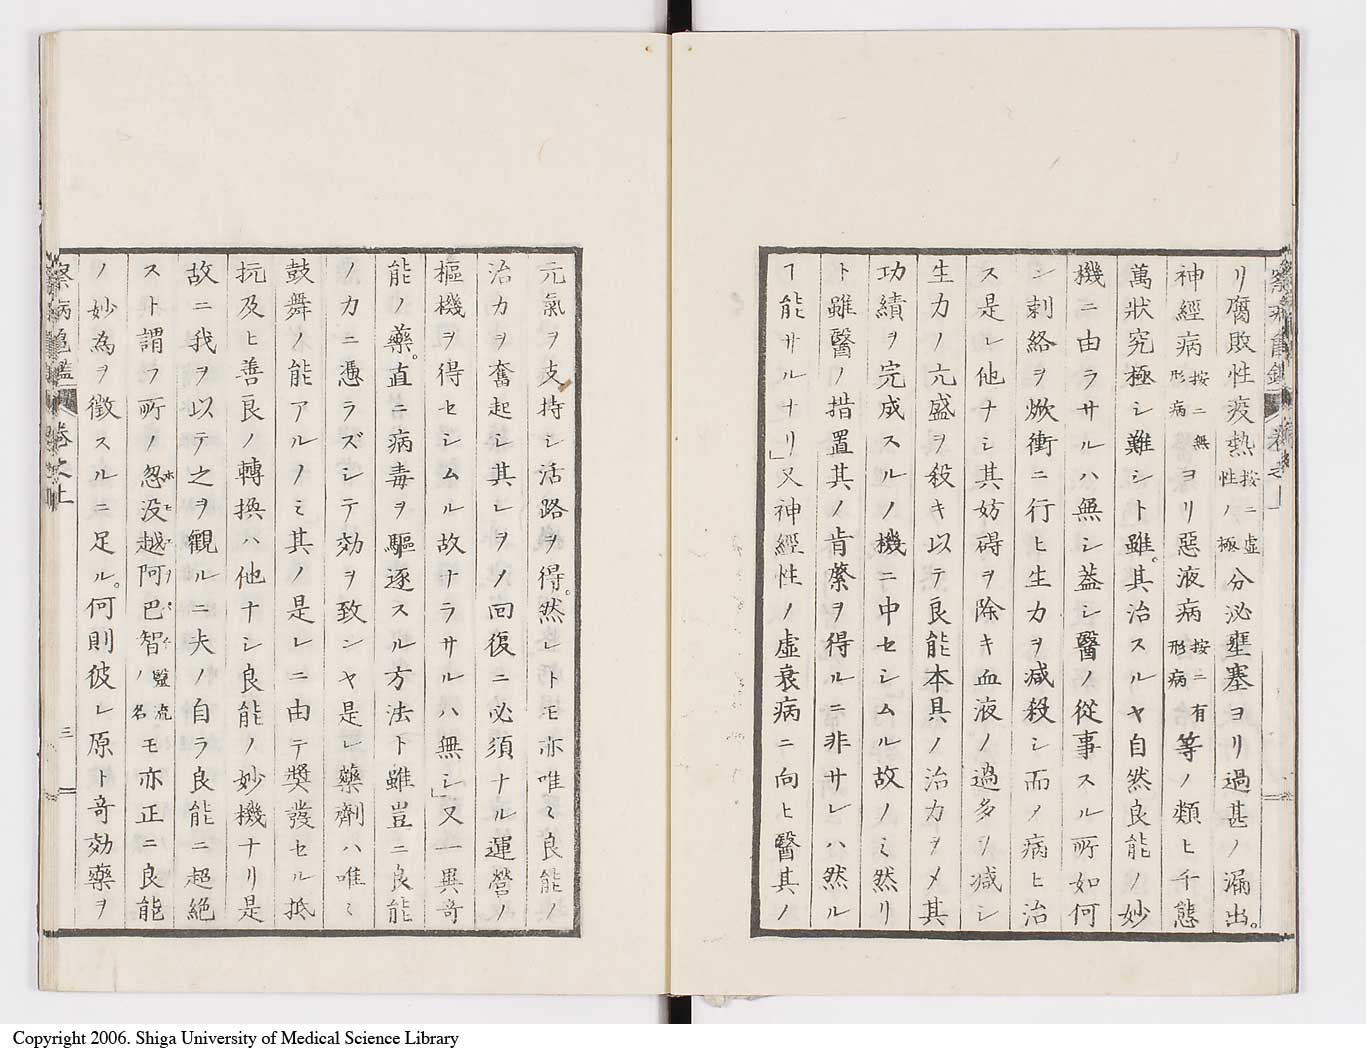 リ腐敗性疫熱按ニ虚性ノ極分泌壅塞ヨリ過甚ノ漏出。
神經病按ニ無形病ヨリ惡液病按ニ有形病等ノ類ヒ千態
萬狀究極シ難シト雖。其治スルヤ自然良能ノ妙
機ニ由ラサルハ無シ蓋シ醫ノ從事スル所如何
ン刺絡ヲ焮衝ニ行ヒ生力ヲ減殺シ而ノ病ヒ治
ス是レ他ナシ其妨碍ヲ除キ血液ノ過多ヲ減シ
生力ノ亢盛ヲ殺キ以テ良能本具ノ治力ヲメ其
功績ヲ完成スルノ機ニ中セシムル故ノミ然リ
ト雖醫ノ措置其ノ肯綮ヲ得ルニ非サレハ然ル
ヿ能サルナリ」又神經性ノ虛衰病ニ向ヒ醫其ノ
元氣ヲ支持シ活路ヲ得。然レトモ亦唯〻良能ノ
治力ヲ奮起シ其レヲノ回復ニ必須ナル運營ノ
樞機ヲ得セシムル故ナラサルハ無シ」又一異奇
能ノ藥。直ニ病毒ヲ驅逐スル方法ト雖豈ニ良能
ノ力ニ憑ラズシテ効ヲ致ンヤ是レ藥劑ハ唯〻
鼓舞ノ能アルノミ其ノ是レニ由テ奬發セル抵
抗及ヒ善良ノ轉換ハ他ナシ良能ノ妙機ナリ是
故ニ我ヲ以テ之ヲ觀ルニ夫ノ自ラ良能ニ超絶
スト謂ラ所ノ忽没越阿巴智ノ醫流名モ亦正ニ良能
ノ妙為ヲ徴スルニ足ル。何則彼レ原ト奇効藥ヲ
察病亀鑑 卷之上 三
Copyright 2006. Shiga University of Medical Science Library